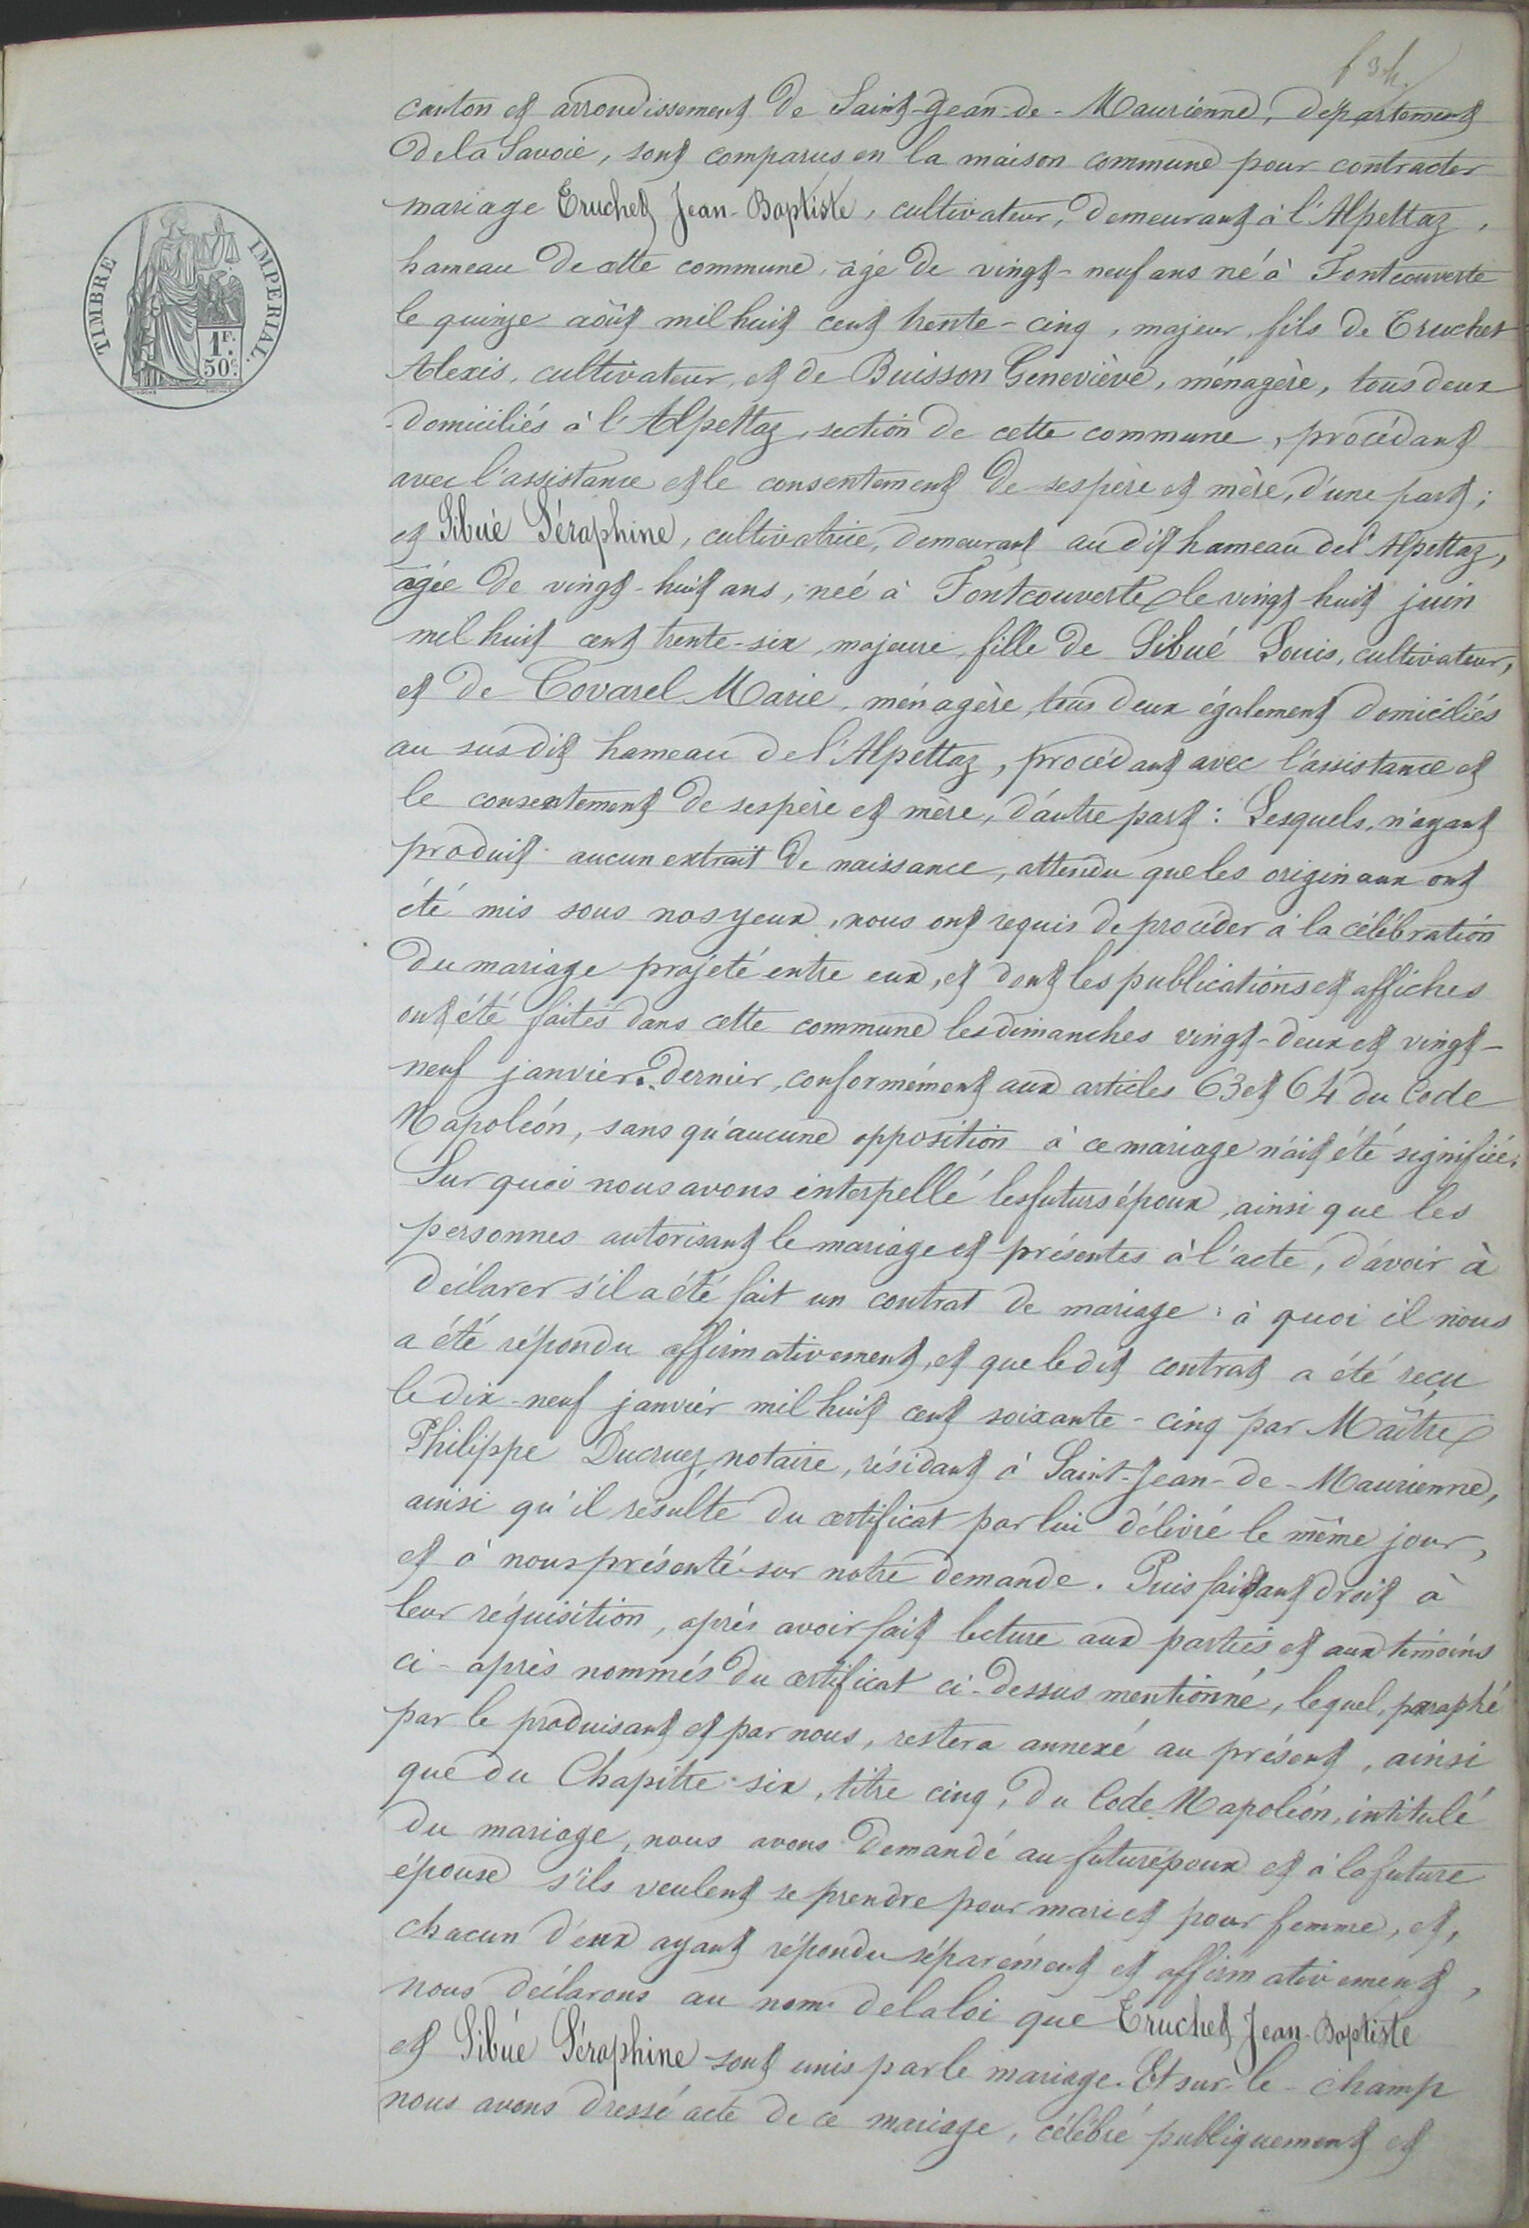 canton et arrondissement de Saint-Jean-de-Maurienne, département
de la Savoie, sont comparus en la maison commune pour contracter
mariage Truchet Jean-Baptiste, cultivateur, demeurant à l'Alpettaz,
hameau de cette commune, âgé de vingt-neuf ans né à Fontcouverte
le quinze août mil huit cent trente-cinq, majeur, fils de Truchet
Alexis, cultivateur, et de Buisson Geneviève, ménagère, tous deux
domiciliés à l'Alpettaz, section de cette commune, procédant
avec l'assistance et le consentement de ses père et mère, d'une part;
et Sibué Séraphine, cultivatrice, demeurant au dit hameau de l'Alpettaz,
âgée de vingt-huit ans, née à Fontcouverte le vingt huit juin
mil huit cent trente-six, majeure, fille de Sibué Louis, cultivateur,
et de Covarel Marie, ménagère, tous deux également domiciliés
au susdit hameau de l'Alpettaz, procédant avec l'assistance et
le consentement de ses père et mère, d'autre part: Lesquels, n'ayant
produit aucun extrait de naissance, attendu que les originaux ont
été mis sous nos yeux, nous ont requis de procéder à la célébration
du mariage projeté entre eux, et dont les publications et affiches
ont été faites dans cette commune les dimanches vingt-deux et vingt-
neuf janvier dernier, conformément aux articles 63 et 64 du Code
Napoléon, sans qu'aucune opposition à ce mariage n'ait été signifiée.
Sur quoi nous avons interpellé les futurs époux, ainsi que les
personnes autorisant le mariage et présentes à l'acte, d'avoir à
déclarer s'il a été fait un contrat de mariage: à quoi il nous
a été répondu affirmativement, et que le dit contrat a été reçu
le dix-neuf janvier mil huit cent soixante-cinq par Maître
Philippe Ducruez, notaire, résidant à Saint-Jean-de-Maurienne,
ainsi qu'il résulte du certificat par lui délivré le même jour,
et à nous présenté sur notre demande. Puis faisant droit à
leur réquisition, après avoir fait lecture aux parties et aux témoins
ci-après nommés du certificat ci-dessus mentionné, lequel, paraphé
par le produisant et par nous, restera annexé au présent, ainsi
que du Chapitre six, titre cinq, du Code Napoléon, intitulé
du mariage, nous avons demandé au futur époux et à la future
épouse s'ils veulent se prendre pour mari et pour femme, et,
chacun d'eux ayant répondu séparément et affirmativement,
nous déclarons au nom de la loi que Truchet Jean-Baptiste
et Sibué Séraphine sont unis par le mariage. Et sur-le-champ
nous avons dressé acte de ce mariage, célébré publiquement et
TIMBRE IMPERIAL.
1F.
50c.